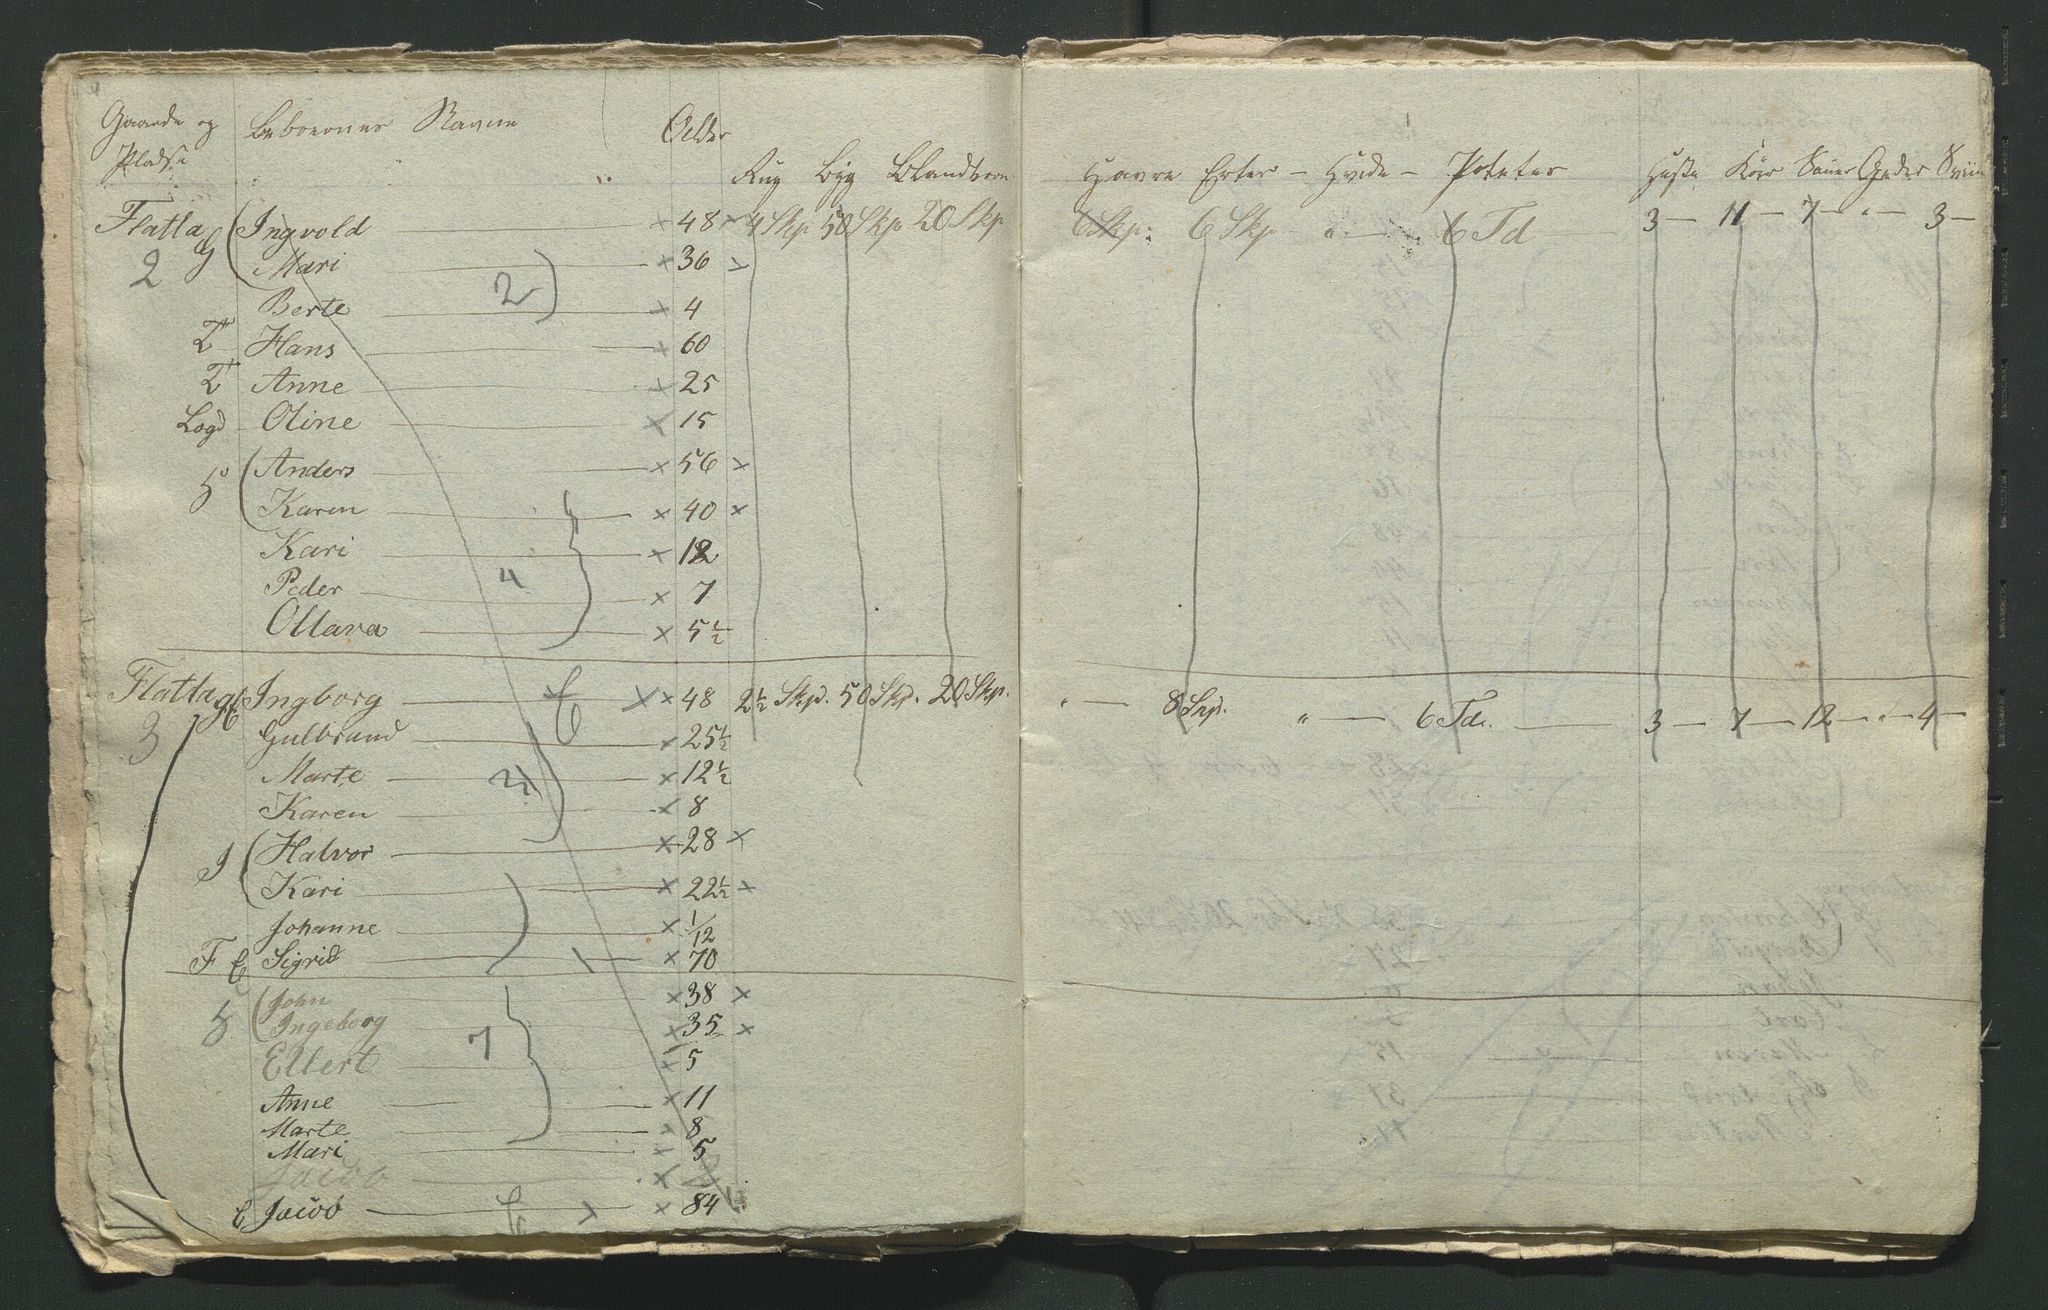 Gaarde og Beboernes Navne Alder
Pladse Rug Byg Blandkorn Havre Erter - Hvide - Poteter Heste Kör Sauer Geder Sviin
Flatla G Ingvold 48 4 Skp 50 Skp 20 Skp 6 Skp: 6 Skp " 6 Td 3 11 7 " 3
2 Mari 36
Berte 2 4
T Hans 60
T Anne 25
Logd Oline 15
Anders 56
H Karen 40
Kari 12
Peder 4 7
Ollava 5½
Flatla g E Ingborg 48 2½ Skp. 50 Skp. 20 Skp. " 8 Skp. " 6 Td. 3 7 12 " 4
3 Gulbrand 25½
Marte 2 12½
Karen 8
I Halvor 28
Kari 22½
Johanne 1/12
F E Sigrid 70
John 38
H Ingeborg 35
Ellert 7 5
Anne 11
Marte 8
Mari 5
Jacob
E Jacob 84